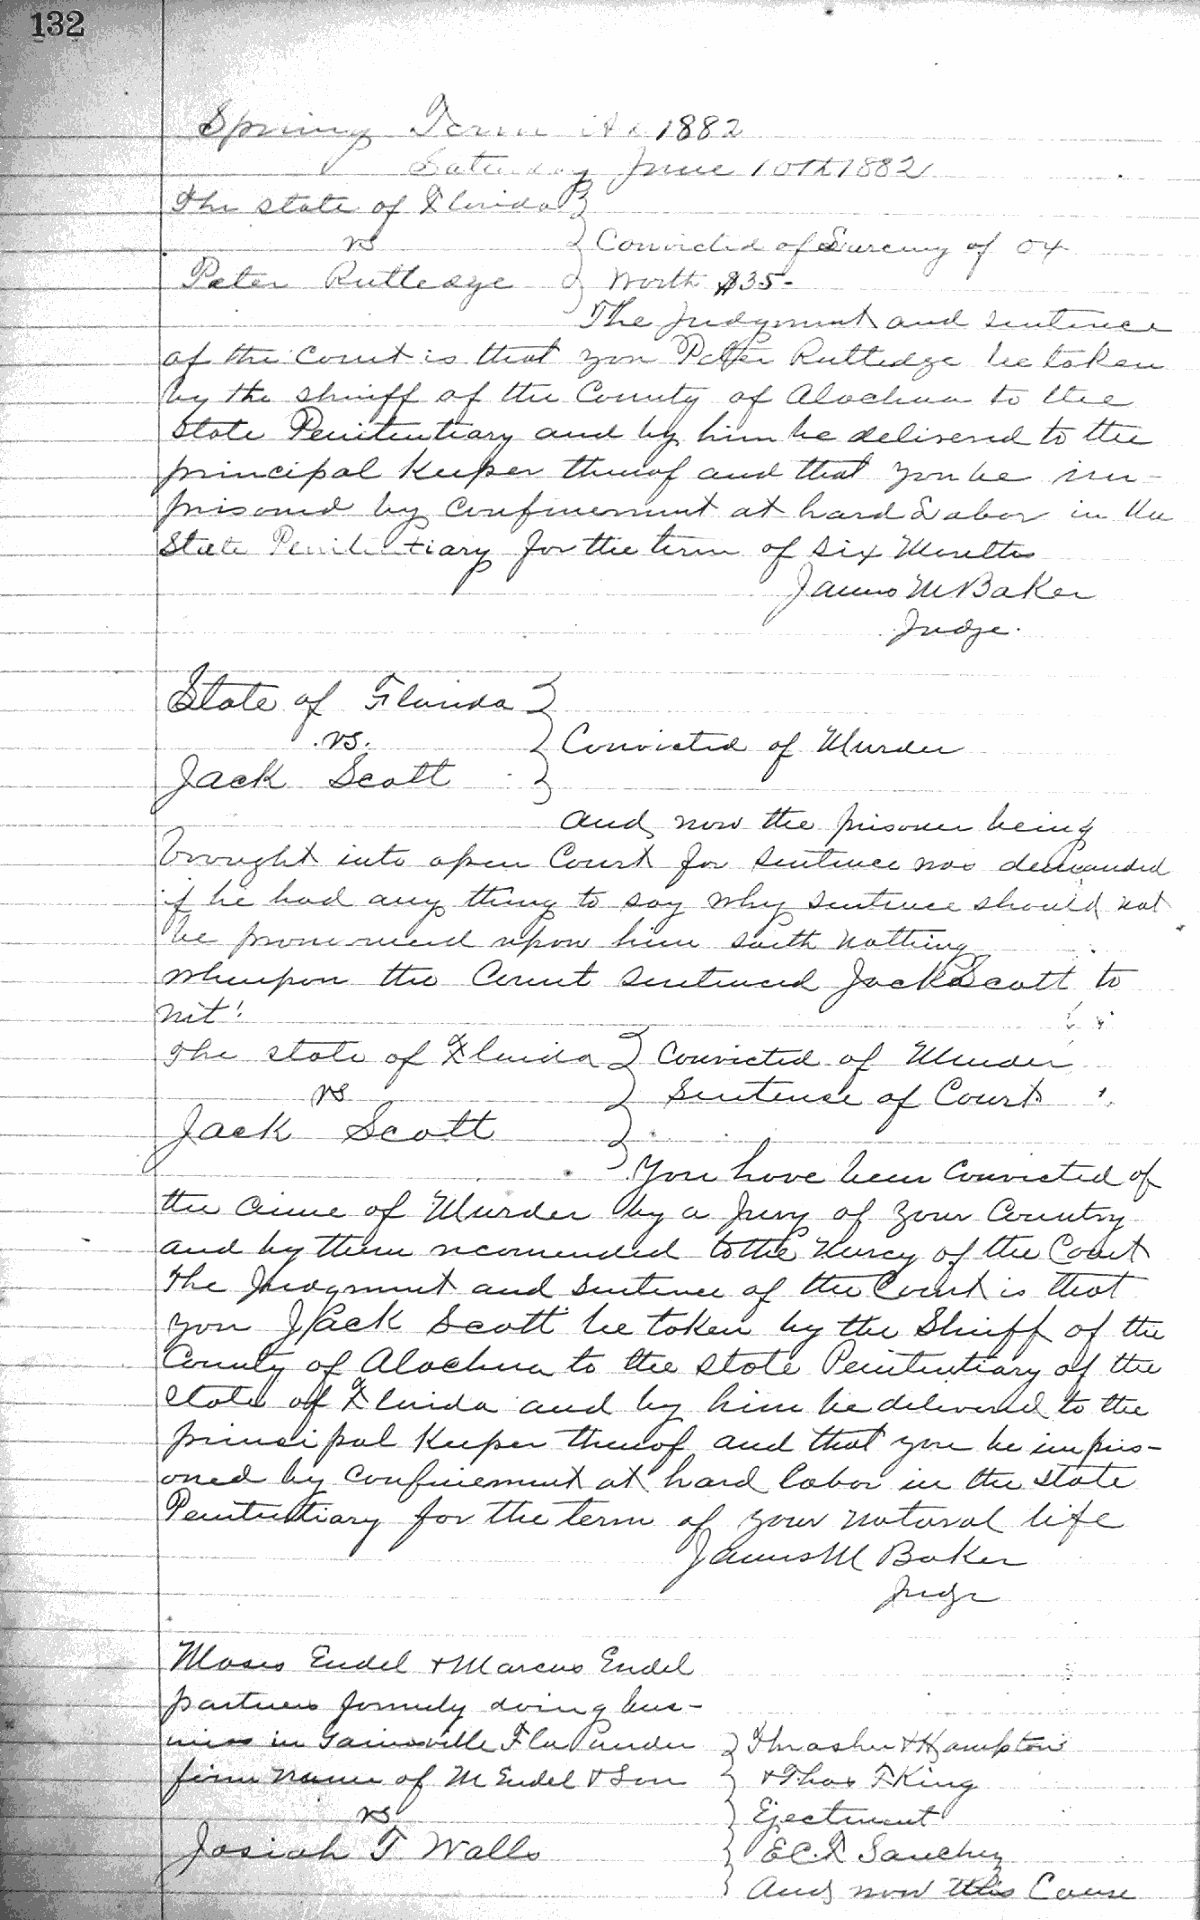 132
Spring Term A.D. 1882
Saturday June 10th 1882
The state of Florida
vs
Convicted of Larceny of ox
Peter Rutledge
Worth $35-
The Judgment and sentence
of the Court is that you Peter Rutledge be taken
by the sheriff of the County of Alachua to the
State Penitentiary and by him be delivered to the
principal Keeper thereof and that you be im-
prisoned by confinement at hard Labor in the
State Penitentiary for the term of six Months
James M Baker
Judge.
State of Florida
vs.
Convicted of Murder
Jack Scott
and now the prisoner being
brought into open Court for sentence was demanded
if he had any thing to say why sentence should not
be pronounced upon him saith nothing
whereupon the Court sentenced Jack Scott to
wit:
The state of Florida
Convicted of Murder
vs
Sentense of Court
Jack Scott
You have been convicted of
the crime of Murder by a Jury of your Country
and by them recomended to the Mercy of the Court
The Judgment and sentence of the Court is that
you Jack Scott be taken by the Sheriff of the
County of Alachua to the state Penitentiary of the
state of Florida and by him be delivered to the
principal Keeper thereof and that you be impris-
oned by confinement at hard labor in the state
Penitentiary for the term of your natural life
James M Baker
Judge
Moses Endel & Marcus Endel
partners formerly doing bus-
iness in Gainesville Fla under
Thrasher & Hampton
firm name of M Endel & Son
& Thos F King
vs
Ejectment
Josiah T Walls
E.C.F. Sanchez
And now this Cause